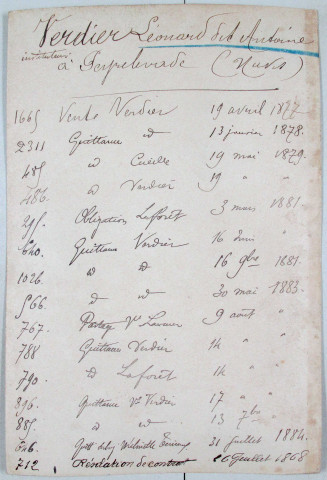 Verdier Léonard dit Antoine
instituteur
à Peyrelevade
1665 Vente Verdier 19 avril 1877.
2311 Quittance d 13 janvier 1878.
485 d 19 mai 1879.
486. d Verdier 19 " "
215. Obligation Laforêt 3 mars 1881.
640. Quittance Verdier 16 juin "
1026 d d 16 9bre 1881.
566. d d 30 mai 1883.
767. Partage Vve 9 août "
788 Quittance Verdier 14 "
790. d Laforêt 14 "
896. Quittance Vve Verdier 17 " "
885. d d 13 7bre "
646 Quitt 31 juillet 1884.
712 Résolution de contrat 16 juillet 1868